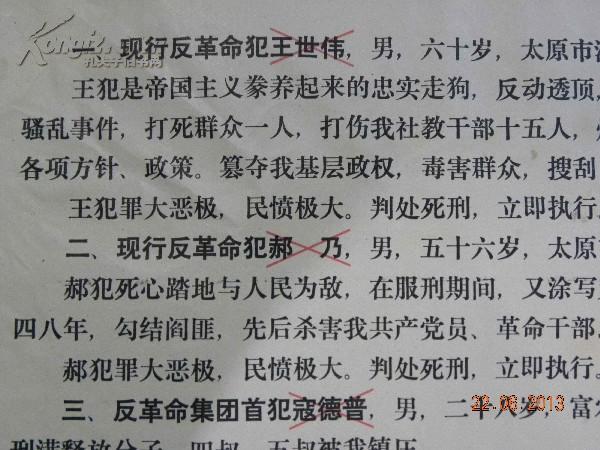 一、现行反革命犯王世伟，男，六十岁，太原市
王犯是帝国主义豢养起来的忠实走狗，反动透顶，
骚乱事件，打死群众一人，打伤我社教干部十五人，
各项方针、政策。篡夺我基层政权，毒害群众，搜刮
王犯罪大恶极，民愤极大。判处死刑，立即执行。
二、现行反革命犯郝　乃，男，五十六岁，太原
郝犯死心踏地与人民为敌，在服刑期间，又涂写
四八年，勾结阎匪，先后杀害我共产党员、革命干部
郝犯罪大恶极，民愤极大。判处死刑，立即执行。
三、反革命集团首犯寇德普，男，二十八岁，富
刑满释放分子，四叔、五叔被我镇压
孔夫子旧书网
22.06.2013